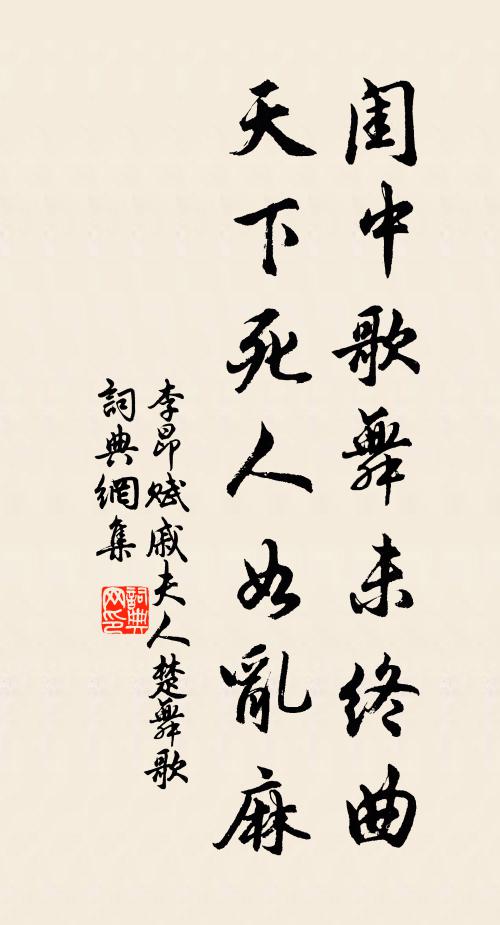 閨中歌舞未終曲
天下死人如亂麻
李昂賦戚夫人楚舞歌
詞典網集
詞典
网印